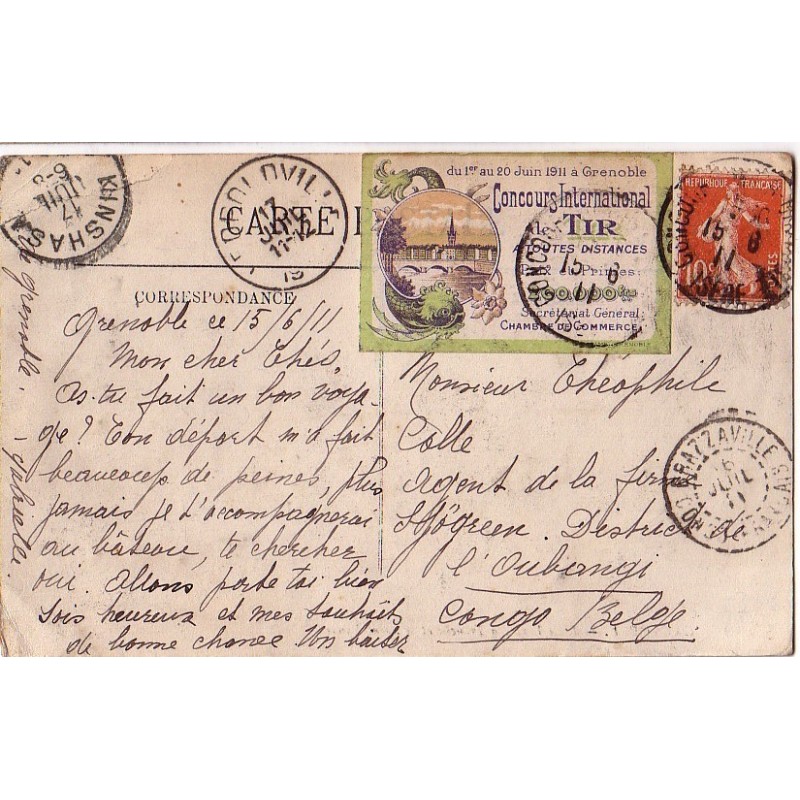 KINSHASA
17
JUIL
6-8
LEOPOLDVILLE
17
JUIL
11-12
19
CARTE
du 1er au 20 Juin 1911 à Grenoble
Concours International
de TIR
TOUTES DISTANCES
Prix et Primes:
Secrétariat Général:
CHAMBRE DE COMMERCE
REPUBLIQUE FRANÇAISE
10c
15 6
11
ISERE
CONCOU
15 6
11
CORRESPONDANCE
Grenoble ce 15/6/
Mon cher Théo,
As-tu fait un bon voya-
ge? Ton départ m'a fait
beaucoup de peines, plus
jamais je t'accompagnerai
au bâteau, te chercher
oui. Allons porte toi bien
sois heureux et mes souhaits
de bonne chance Un baiser
de Grenoble.
Monsieur Theophile
Colle
Agent de la firme
District de
l'Oubangi
Congo Belge.
BRAZZAVILLE
JUIL
11